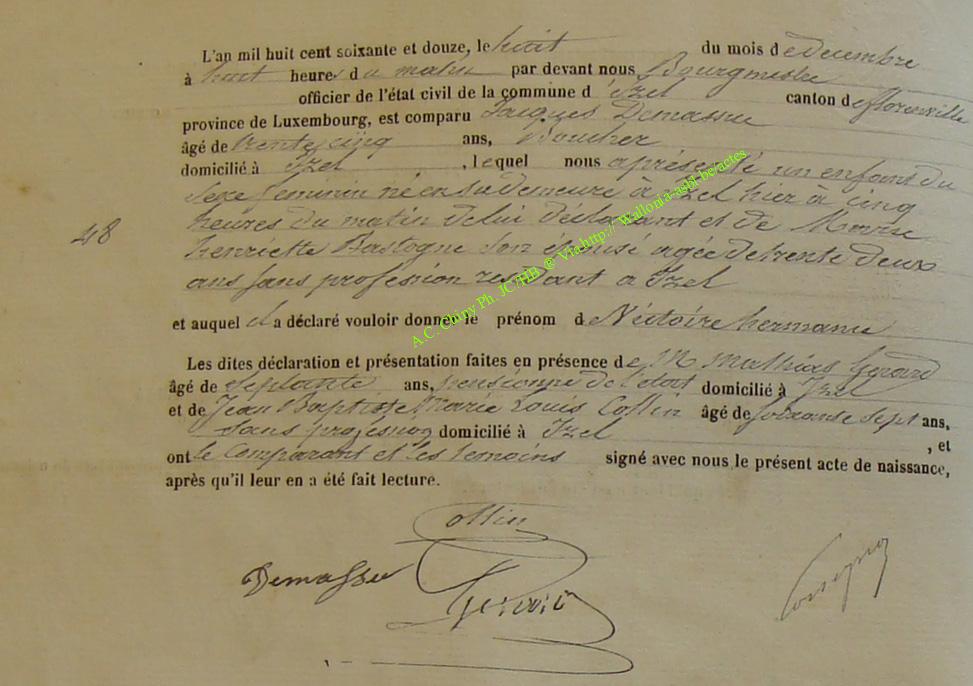 L'an mil huit cent soixante et douze, le huit du mois de decembre
à huit heures du matin par devant nous Bourgmestre
officier de l'état civil de la commune d'Izel canton de florenville
province de Luxembourg, est comparu Jacques Demassue
âgé de trente cinq ans, Boucher
domicilié à Izel, lequel nous a présenté un enfant du
Sexe feminin né en sa demeure à Izel hier à cinq
48
heures du matin de lui déclarant et de Marie
henriette Bastogne son épouse agée de trente deux
ans sans profession residant a Izel
et auquel il a déclaré vouloir donner le prénom de Victoire hermanie
Les dites déclaration et présentation faites en présence de M Mathias Gerard
âgé de septante ans, pensionné de l'état domicilié à Izel
et de Jean Baptiste Marie Louis Collin âgé de soixante sept ans,
sans profession domicilié à Izel, et
ont le Comparant et les temoins signé avec nous le présent acte de naissance,
après qu'il leur en a été fait lecture.
Collin
Demassue
Gerard
A.C. Chiny Ph. JC/HB @ Via.http:// Wallonia-asbl-be/actes